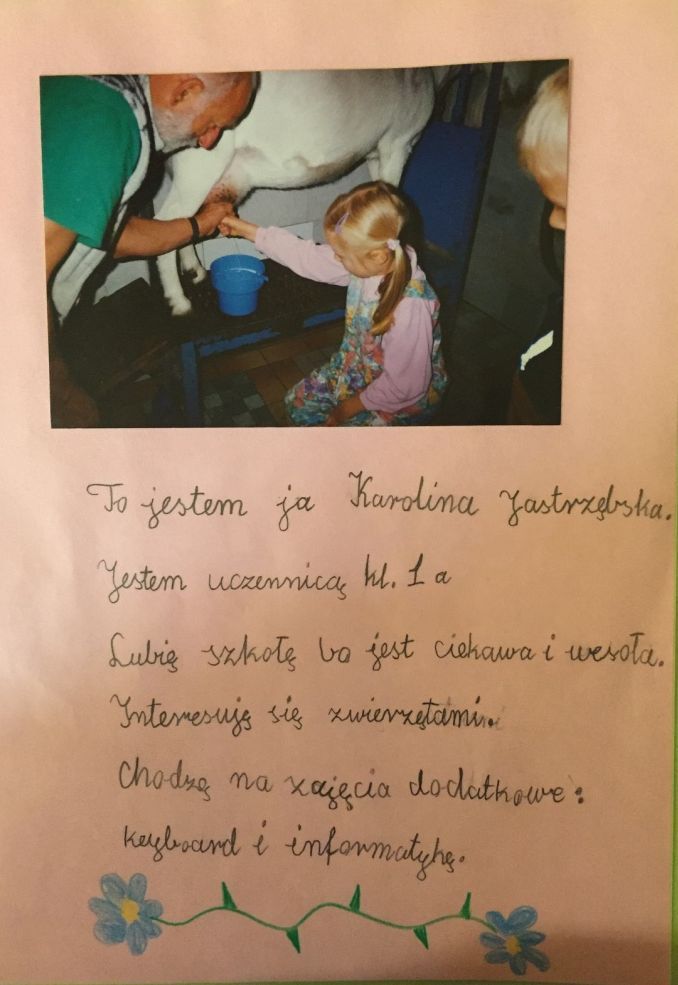 To jestem ja Karolina Jastrzębska.
Jestem uczennicą kl. 1 a
Lubię szkołę bo jest ciekawa i wesoła.
Interesuję się zwierzętami.
Chodzę na zajęcia dodatkowe:
keyboard i informatykę.